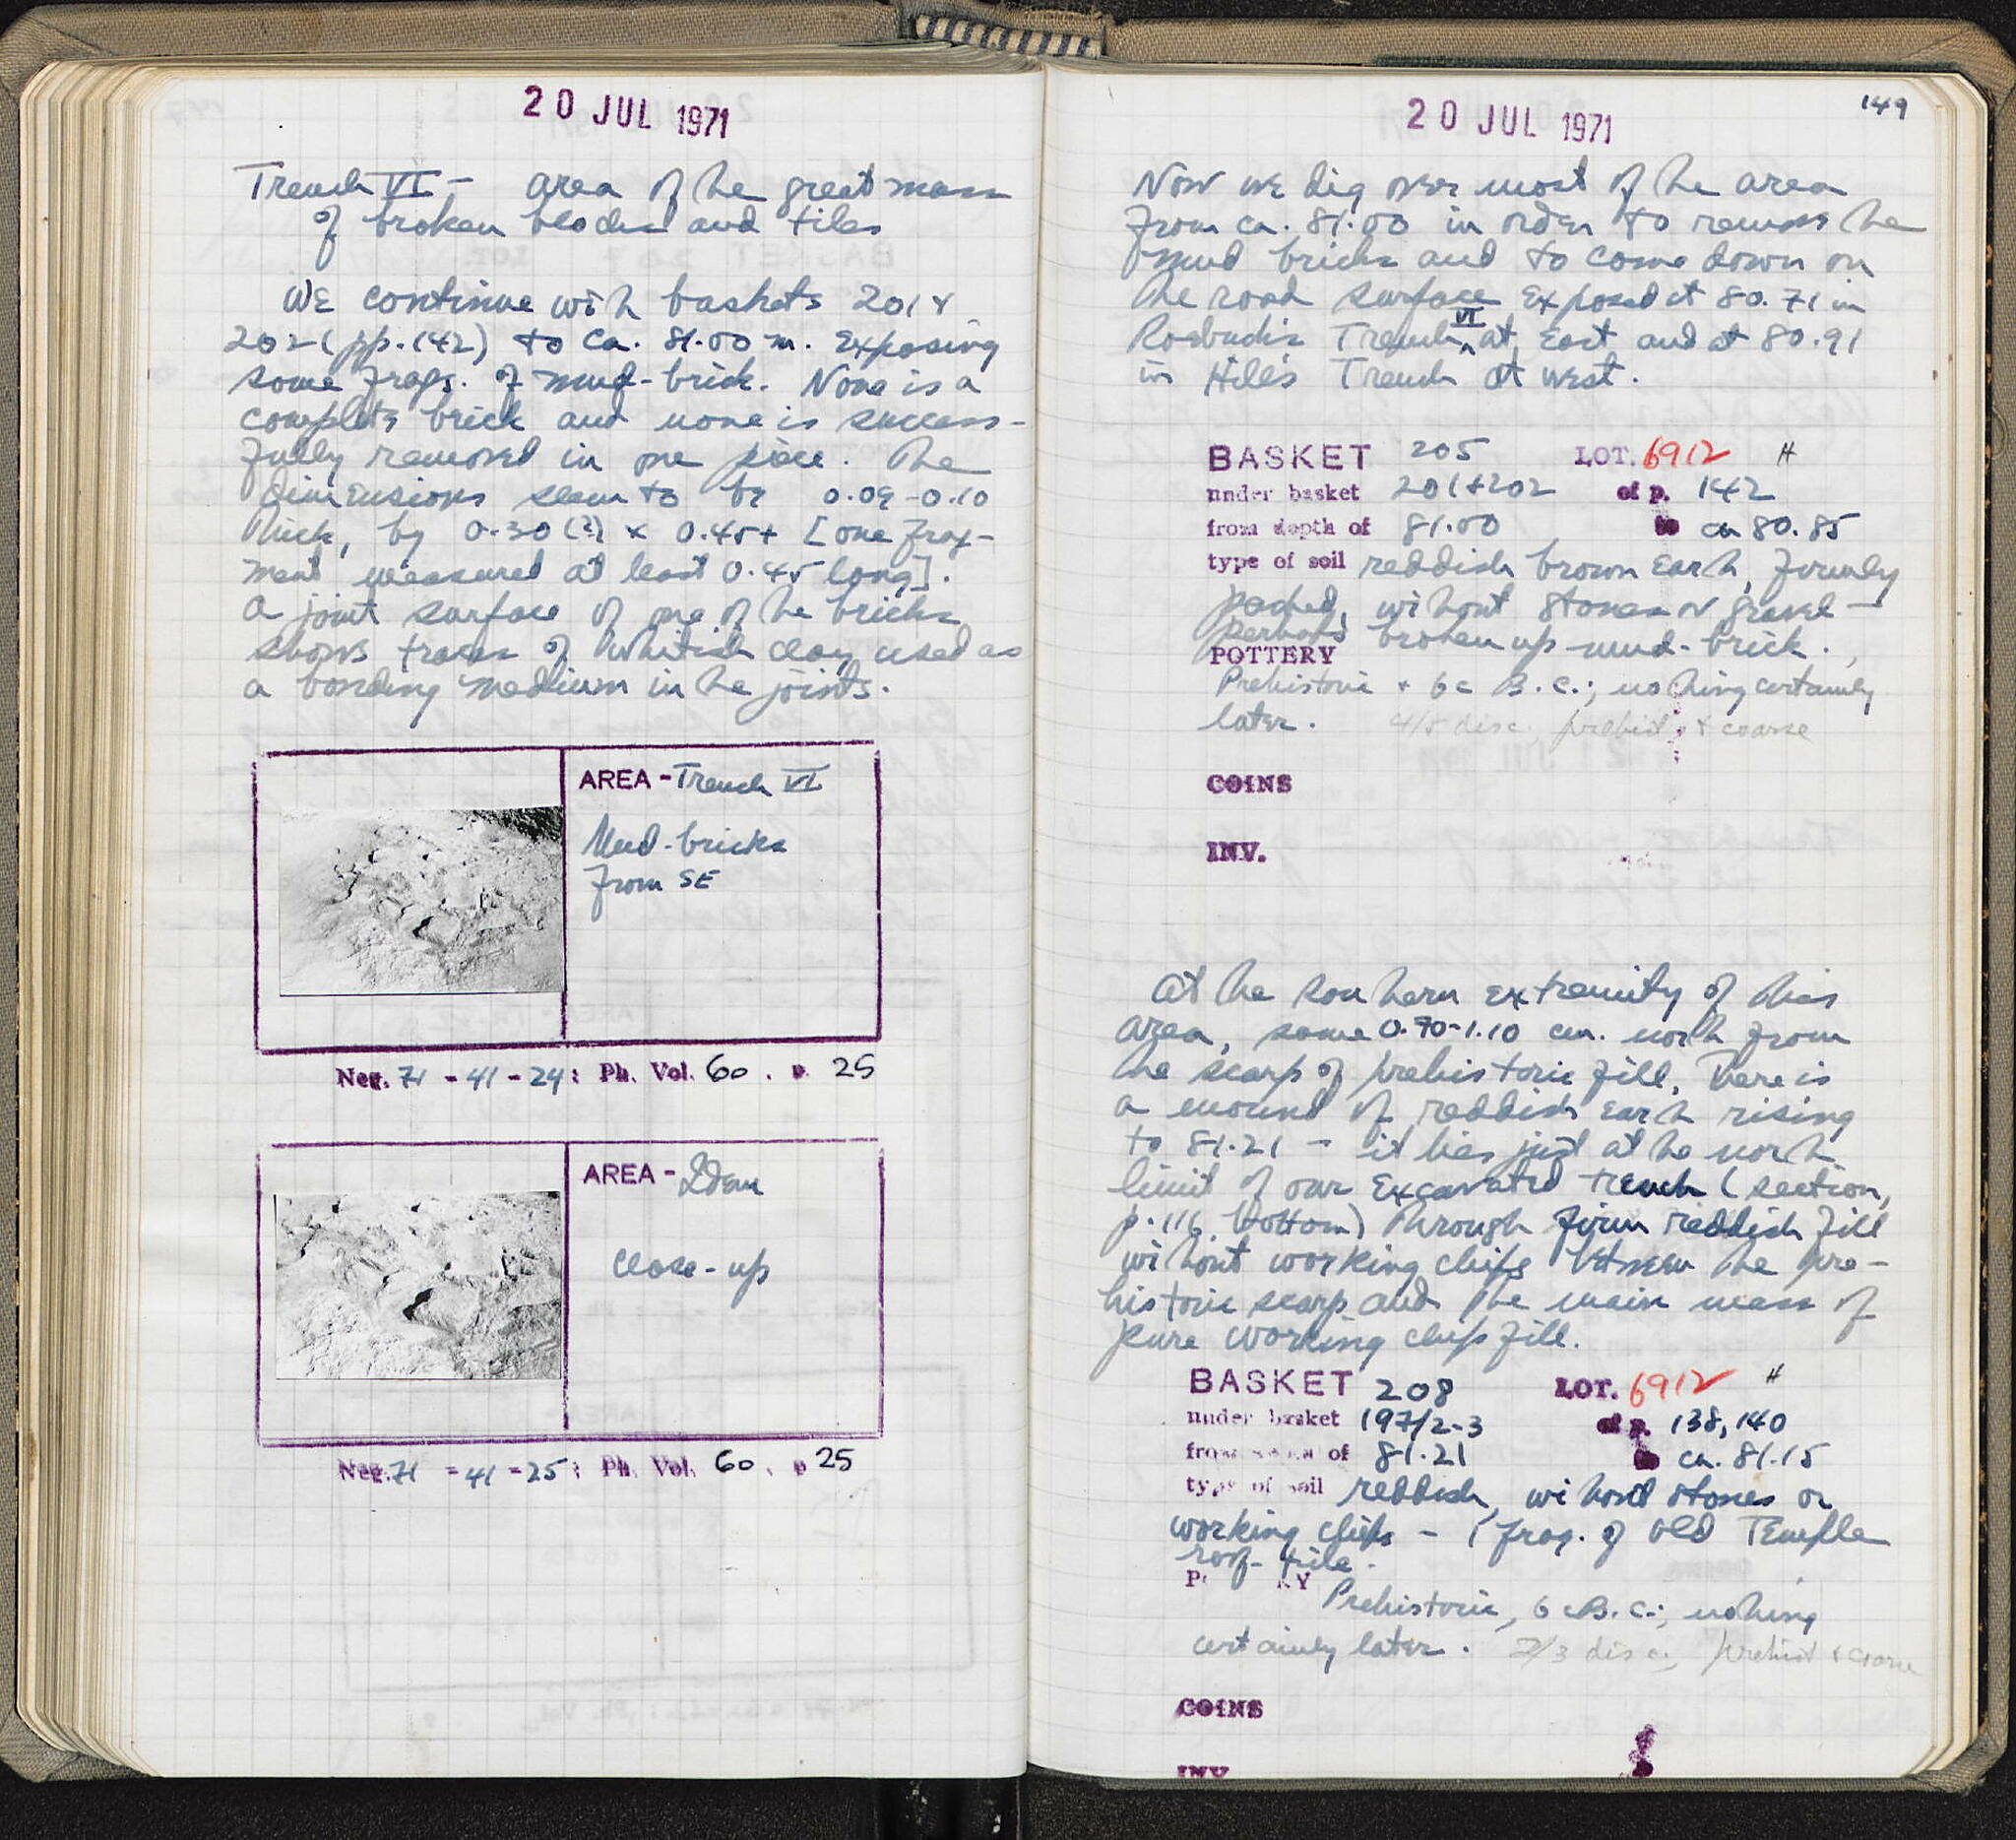 20 JUL 1971
Trench VI - area of the great mass
of broken blocks and tiles
We continue with baskets 201 +
202 (pp. 142) to ca. 81.00 m. Exposing
some frags. of mud-brick. None is a
complete brick and none is success-
fully removed in one piece. The
dimensions seem to be 0.09-0.10
thick, by 0.30(?) x 0.45+ [one frag-
ment measured at least 0.45 long].
A joint surface of one of the bricks
shows traces of whitish clay used as
a bonding medium in the joints.
AREA - Trench VI
Mud-bricks
from SE
Neg. 71 - 41 - 24; Ph. Vol. 60. p. 25
AREA - Idem
close-up
Neg. 71 - 41 - 25; Ph. Vol. 60, p 25
149
20 JUL 1971
Now we dig over most of the area
from ca. 81.00 in order to remove the
mud bricks and to come down on
the road surface exposed at 80.71 in
Roebuck's Trench VI at East and at 80.91
in Hill's Trench at west.
BASKET 205 LOT. 6912 H
under basket 201+202 of p. 142
from depth of 81.00 to ca 80.85
type of soil reddish brown earth, firmly
packed, without stones or gravel -
perhaps broken up mud-brick.
POTTERY
Prehistoric + 6c B.C.; nothing certainly
later. 4/5 disc. prehist. + coarse
COINS
INV.
At the southern extremity of this
area, some 0.70-1.10 cm. north from
the scarp of prehistoric fill, there is
a mound of reddish earth rising
to 81.21 - it lies just at the north
limit of our excavated trench (section,
p. 116, bottom) through firm reddish fill
without working chips between the pre-
historic scarp and the main mass of
pure working chips fill.
BASKET 208 LOT. 6912 H
under basket 197/2-3 of p. 138, 140
from depth of 81.21 to ca. 81.15
type of soil reddish, without stones or
working chips - 1 frag. of Old Temple
roof-tile.
POTTERY
Prehistoric, 6 c B.C.; nothing
certainly later. 2/3 disc., prehist + coarse
COINS
INV